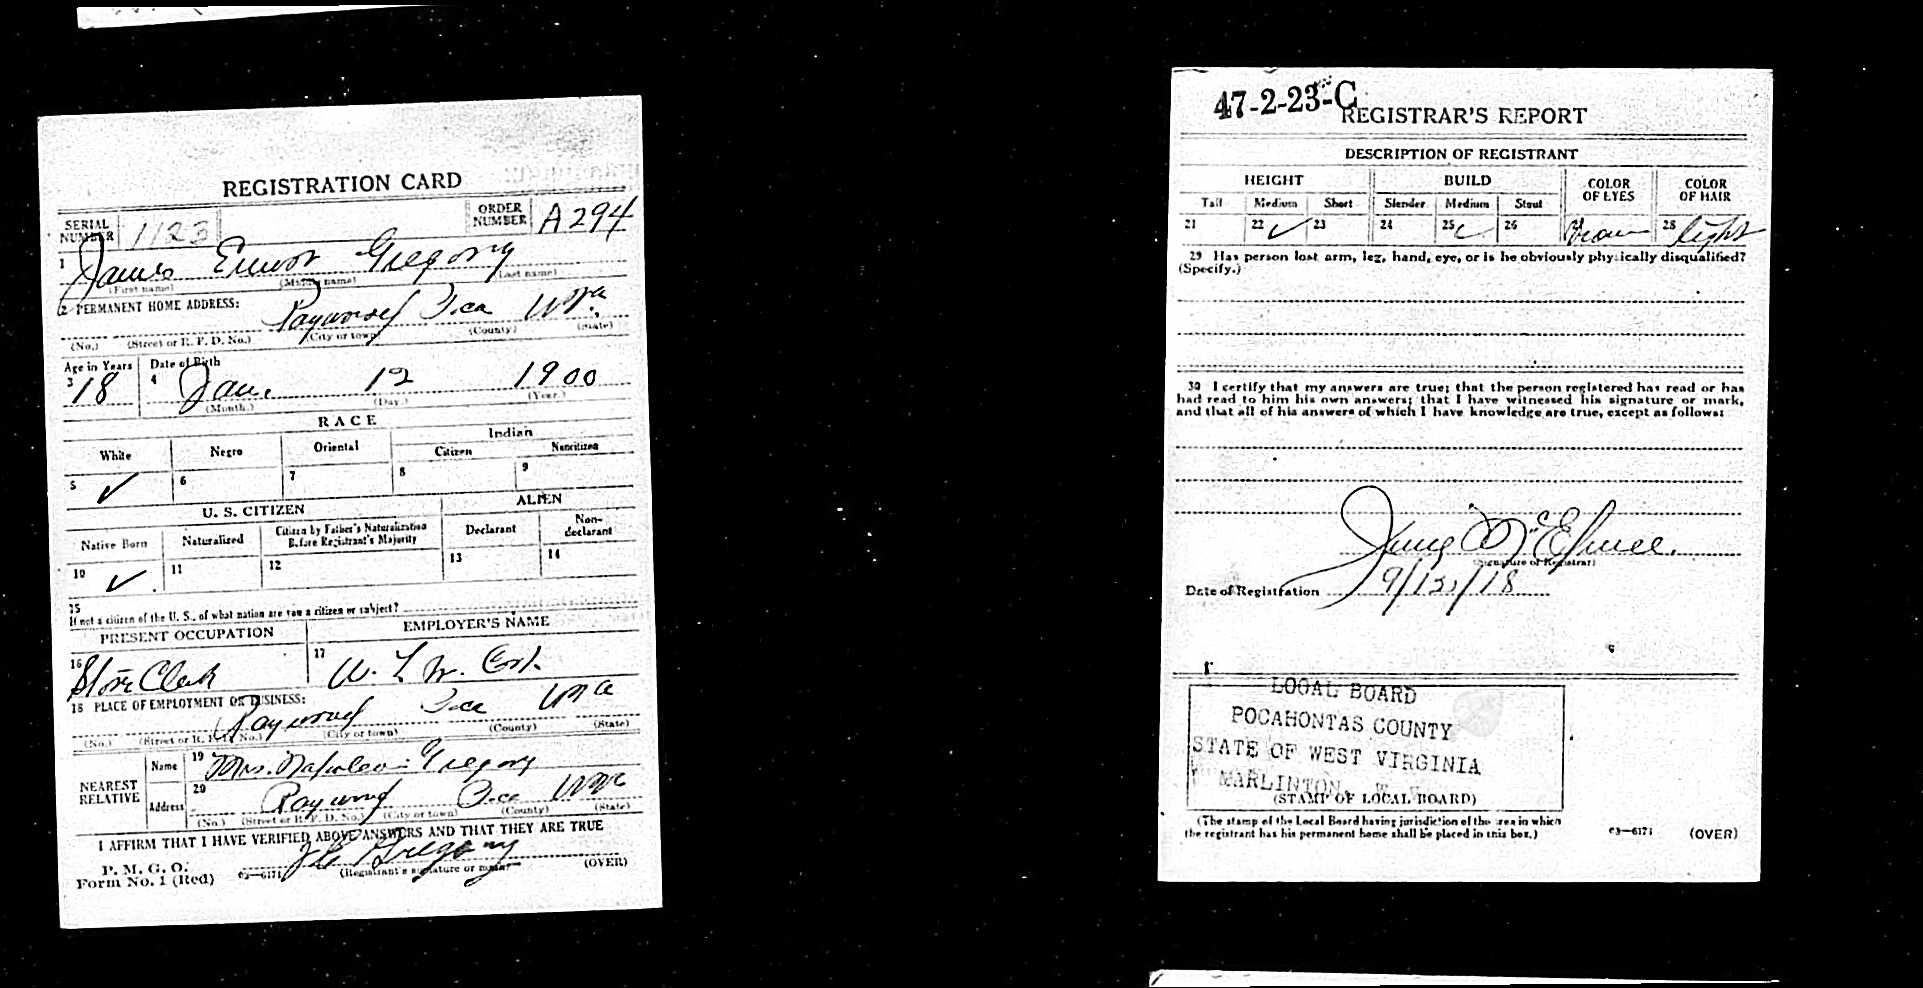 REGISTRATION CARD
SERIAL NUMBER 1123
ORDER NUMBER A294
1 James Gregory
(First name) (Middle name) (Last name)
2 PERMANENT HOME ADDRESS:
Raywood Poca W Va
(No.) (Street or R. F. D. No.) (City or town) (County) (State)
Age in Years Date of Birth
3 18 4 Jan. 12 1900
(Month.) (Day.) (Year.)
RACE
White Negro Oriental Indian
Citizen Noncitizen
5 ✓ 6 7 8 9
U. S. CITIZEN ALIEN
Native Born Naturalized Citizen by Father's Naturalization Before Registrant's Majority Declarant Non-declarant
10 ✓ 11 12 13 14
15
If not a citizen of the U. S., of what nation are you a citizen or subject?
PRESENT OCCUPATION EMPLOYER'S NAME
16 Store Clerk 17 W.
18 PLACE OF EMPLOYMENT OR BUSINESS:
Raywood Poca W Va
(No.) (Street or R. F. D. No.) (City or town) (County) (State)
NEAREST RELATIVE
Name 19 Mrs. Napoleon Gregory
Address 20 Raywood Poca W Va
(No.) (Street or R. F. D. No.) (City or town) (County) (State)
I AFFIRM THAT I HAVE VERIFIED ABOVE ANSWERS AND THAT THEY ARE TRUE
P. M. G. O.
Form No. 1 (Red) 03—6171 Gregory
(Registrant's signature or mark) (OVER)
47-2-23-C
REGISTRAR'S REPORT
DESCRIPTION OF REGISTRANT
HEIGHT BUILD COLOR OF EYES COLOR OF HAIR
Tall Medium Short Slender Medium Stout
21 22 ✓ 23 24 25 ✓ 26 27 Brown 28 light
29 Has person lost arm, leg, hand, eye, or is he obviously physically disqualified?
(Specify.)
30 I certify that my answers are true; that the person registered has read or has
had read to him his own answers; that I have witnessed his signature or mark,
and that all of his answers of which I have knowledge are true, except as follows:
(Signature of Registrar)
Date of Registration 9/12/18
LOCAL BOARD
POCAHONTAS COUNTY
STATE OF WEST VIRGINIA
MARLINTON,
(STAMP OF LOCAL BOARD)
(The stamp of the Local Board having jurisdiction of the area in which
the registrant has his permanent home shall be placed in this box.)
03—6171 (OVER)